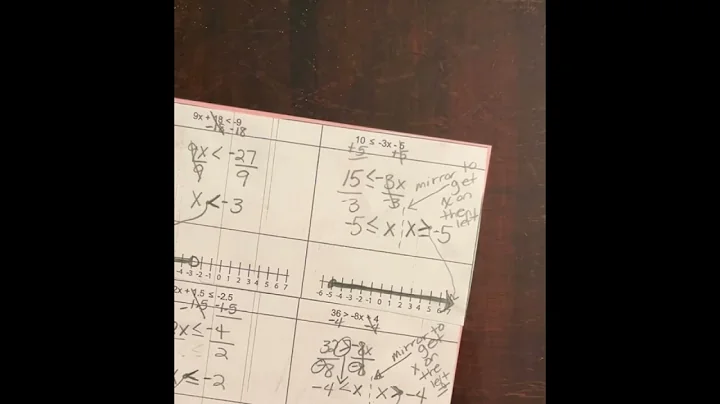 9x + 18 < -9
-18 -18
9x < -27
9 9
x < -3
-4 -3 -2 -1 0 1 2 3 4 5 6 7
10 ≤ -3x - 5
+5 +5
15 ≤ -3x
-3 -3
-5 ≤ x x ≥ -5
mirror to
get
x on
the
left
-6 -5 -4 -3 -2 -1 0 1 2 3 4 5 6 7
2x + 1.5 ≤ -2.5
-1.5 -1.5
2x ≤ -4
2
x ≤ -2
36 > -8x + 4
-4 -4
32 > -8x
-8 -8
-4 < x x > -4
mirror to
get
x on
the
left